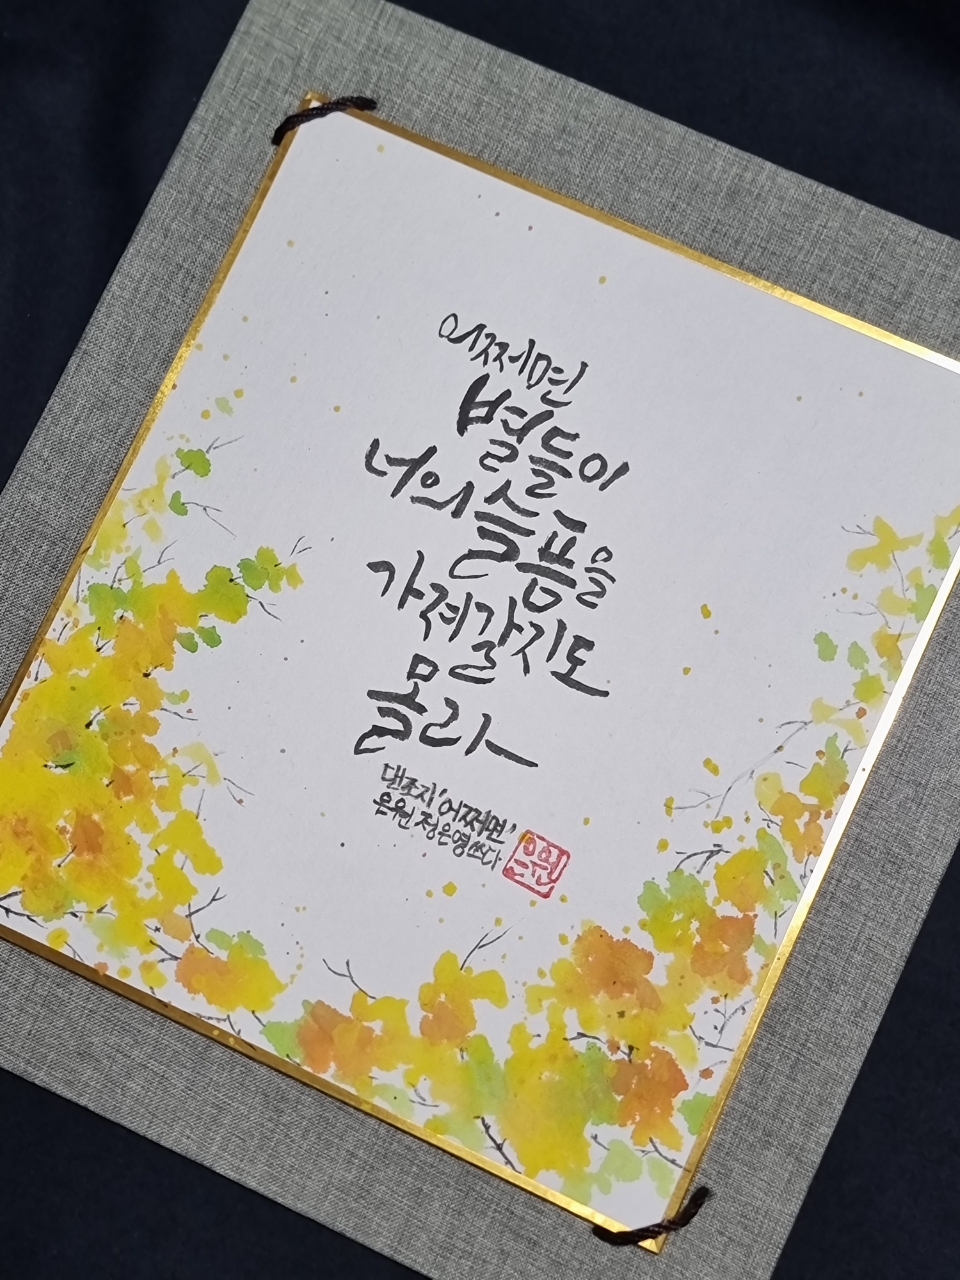 어쩌면
별들이
너의 슬픔을
가져갈지도
몰라
댄조지 '어쩌면'
은원 정은영쓰다
은원